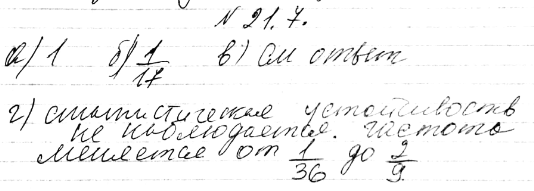 N 21.7.
а) 1 б) 1/17 в) См ответ
г) статистическая устойчивость
не наблюдается. частота
меняется от 1/36 до 2/9.